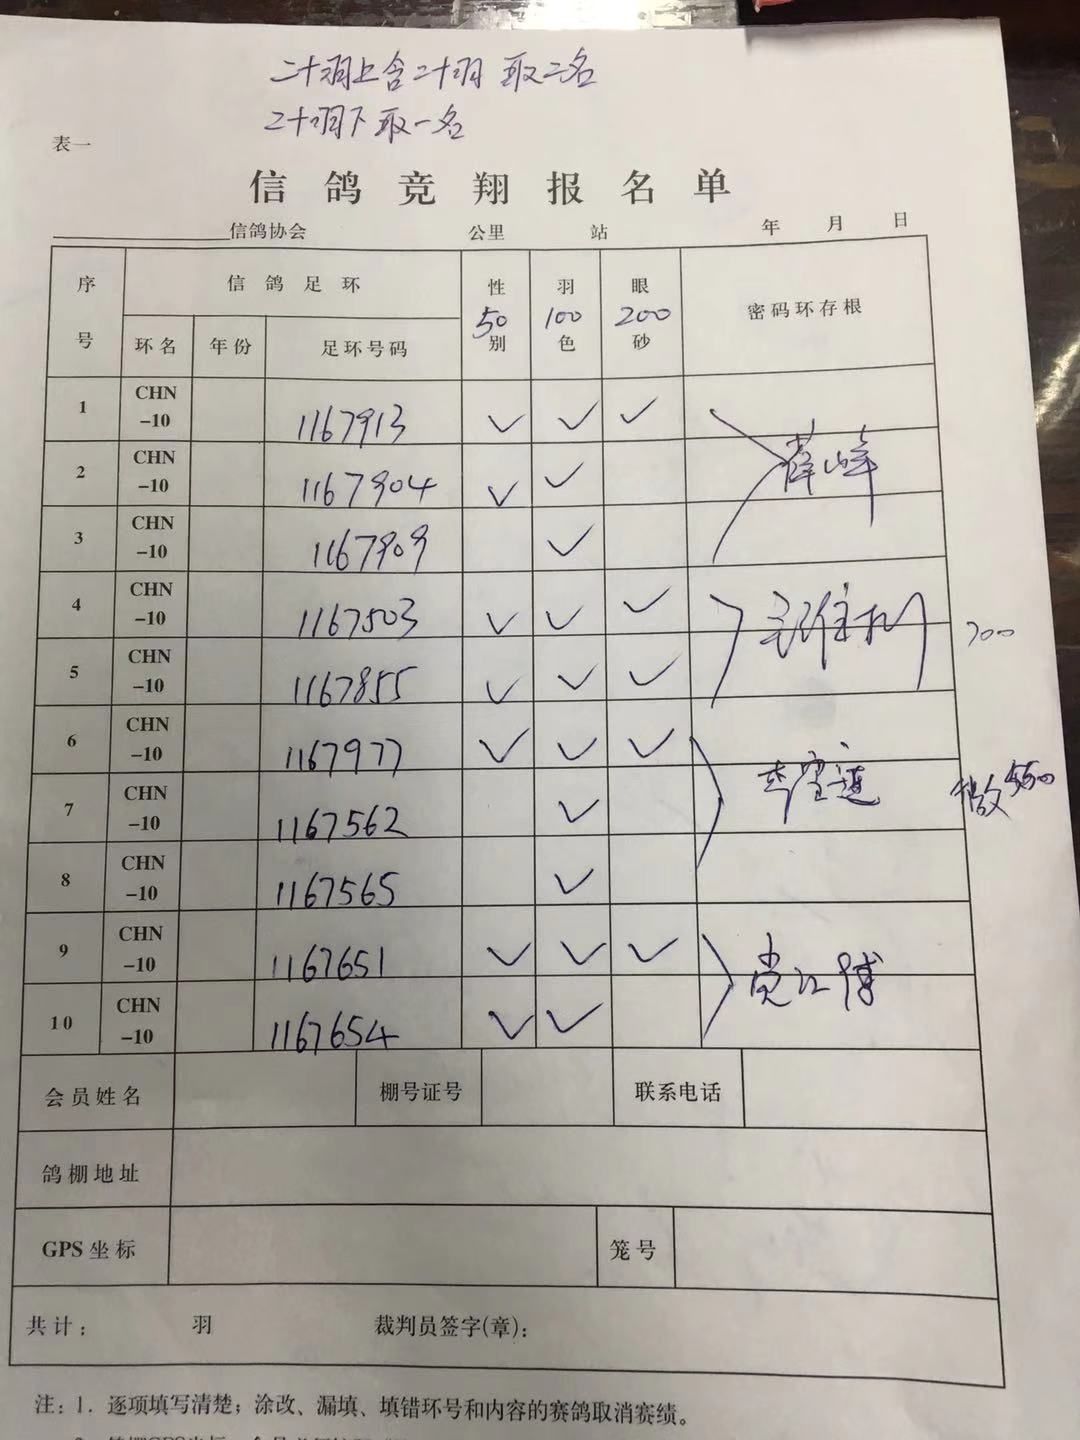 二十羽上含二十羽 取二名
二十羽下取一名
表一
信鸽竞翔报名单
信鸽协会 公里 站 年 月 日
序号 信鸽足环 性别 50 羽色 100 眼砂 200 密码环存根
环名 年份 足环号码
1 CHN-10 1167913 ✓ ✓ ✓
薛峰
2 CHN-10 1167904 ✓ ✓
3 CHN-10 1167909 ✓
4 CHN-10 1167503 ✓ ✓ ✓
700
5 CHN-10 1167855 ✓ ✓ ✓
6 CHN-10 1167977 ✓ ✓ ✓
7 CHN-10 1167562 ✓
李宝莲 缴550
8 CHN-10 1167565 ✓
9 CHN-10 1167651 ✓ ✓ ✓
10 CHN-10 1167654 ✓ ✓
会员姓名 棚号证号 联系电话
鸽棚地址
GPS坐标 笼号
共计： 羽 裁判员签字(章)：
注：1. 逐项填写清楚；涂改、漏填、填错环号和内容的赛鸽取消赛绩。